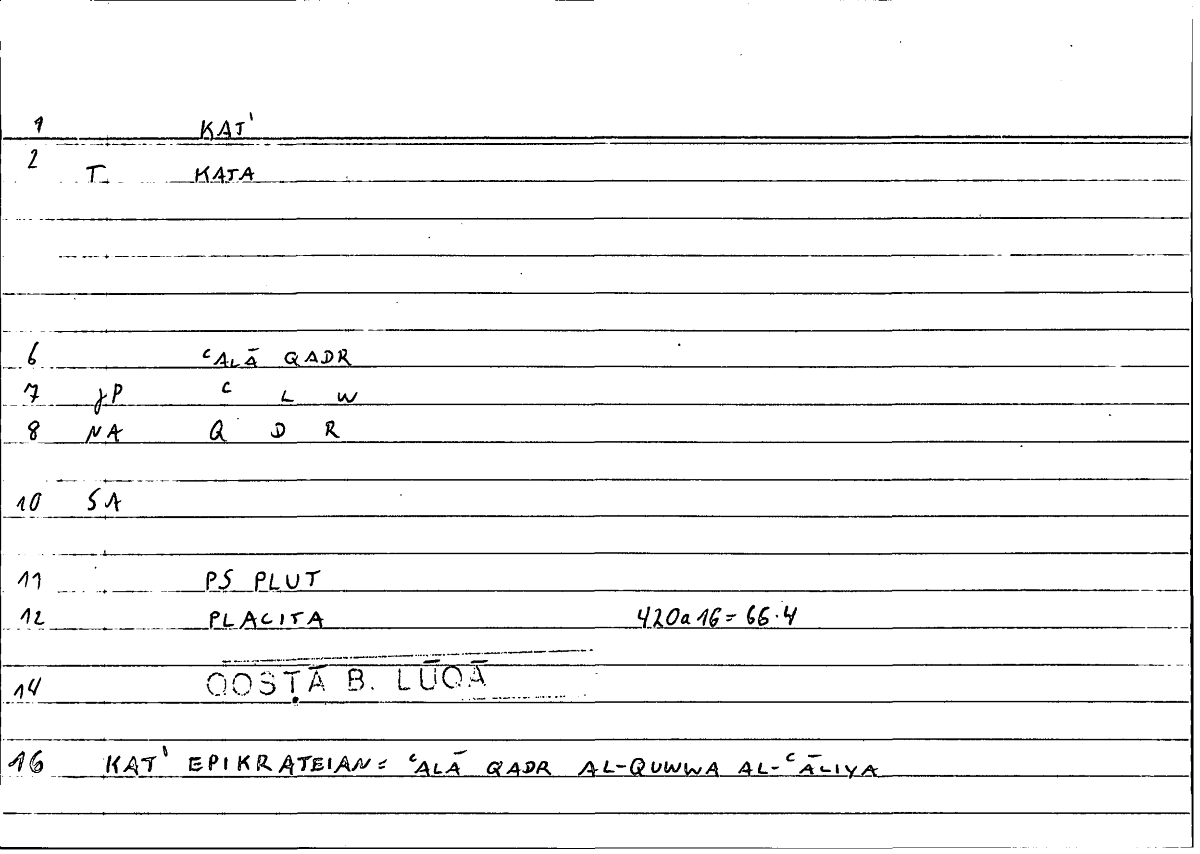 1 KAT'
2 T KATA
6 ᶜALĀ QADR
7 JP ᶜ L W
8 NA Q D R
10 SA
11 PS PLUT
12 PLACITA 420a16=66.4
14 QOSṬĀ B. LŪQĀ
16 KAT' EPIKRATEIAN= ᶜALĀ QADR AL-QUWWA AL-ᶜĀLIYA